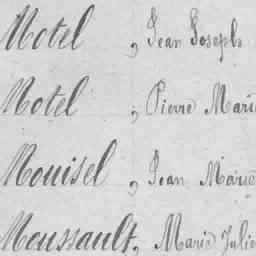 Motel, Jean Joseph
Motel, Pierre Marie
Mouisel, Jean Marie
Moussault, Marie Julie